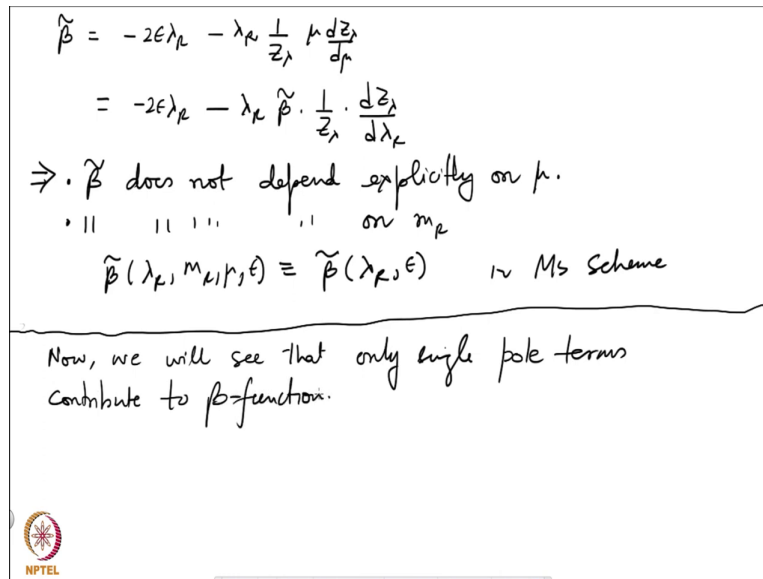 β̃ = -2ϵλ_R - λ_R 1/Z_λ μ dZ_λ/dμ
= -2ϵλ_R - λ_R β̃ · 1/Z_λ · dZ_λ/dλ_R
⇒ · β̃ does not depend explicitly on μ.
· " " " " on m_R
β̃(λ_R, m_R, μ, ϵ) ≡ β̃(λ_R, ϵ) in MS scheme
Now, we will see that only single pole terms
contribute to β-function.
NPTEL